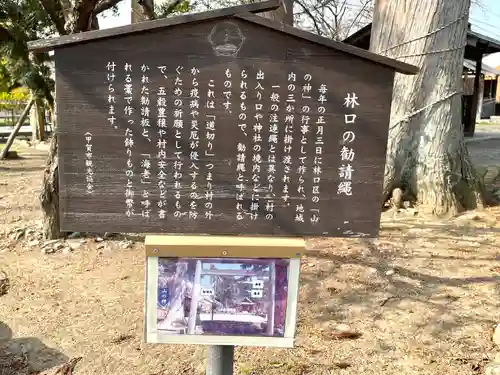 林口の勧請縄
毎年の正月三日に林口区の「山
の神」の行事として作られ、地域
内の三か所に掛け渡されます。
一般の注連縄とは異なり、村の
出入り口や神社の境内などに掛け
られるもので、勧請縄と呼ばれる
ものです。
これは「道切り」つまり村の外
から疫病や災厄が侵入するのを防
ぐための祈願として行われるもの
で、五穀豊穣や村内安全などが書
かれた勧請板と、「海老」と呼ば
れる藁で作った飾りものと御幣が
付けられます。
(甲賀市観光協会)